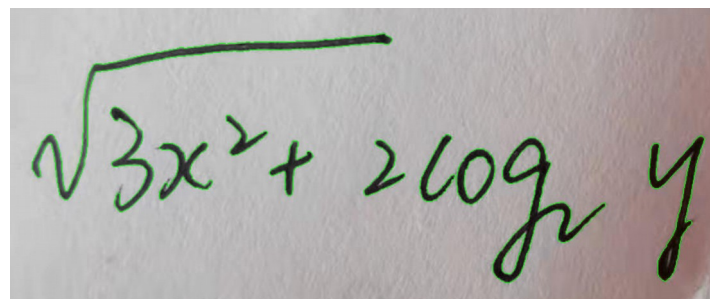 √3x² + 2log₂ y